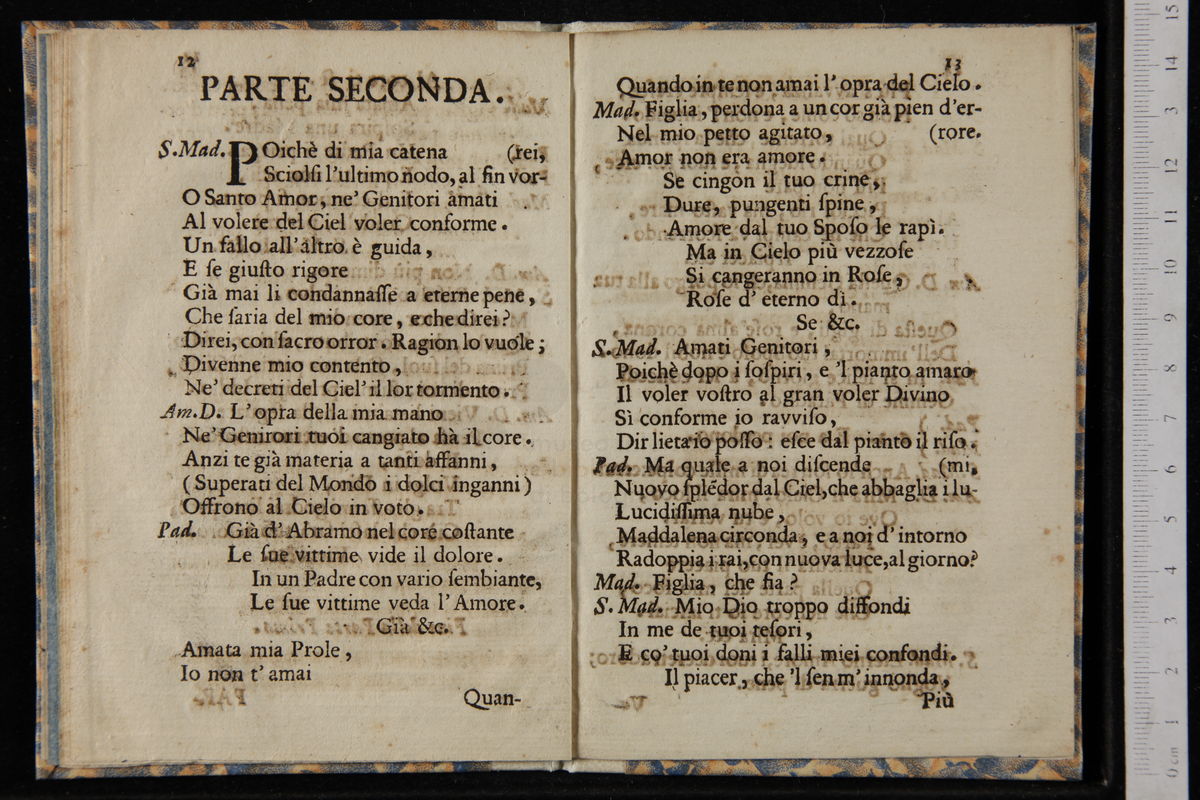 12
PARTE SECONDA.
S.Mad. POichè di mia catena (rei,
Sciolſi l'ultimo nodo, al fin vor-
O Santo Amor, ne' Genitori amati
Al volere del Ciel voler conforme.
Un fallo all'altro è guida,
E ſe giuſto rigore
Già mai li condannaſſe a eterne pene,
Che ſaria del mio core, e che direi?
Direi, con ſacro orror. Ragion lo vuole;
Divenne mio contento,
Ne' decreti del Ciel' il lor tormento.
Am.D. L'opra della mia mano
Ne' Genirori tuoi cangiato hà il core.
Anzi te già materia a tanti affanni,
(Superati del Mondo i dolci inganni)
Offrono al Cielo in voto.
Pad. Già d' Abramo nel core coſtante
Le ſue vittime vide il dolore.
In un Padre con vario ſembiante,
Le ſue vittime veda l' Amore.
Già &c.
Amata mia Prole,
Io non t' amai
Quan-
13
Quando in te non amai l' opra del Cielo.
Mad. Figlia, perdona a un cor già pien d'er-
Nel mio petto agitato, (rore.
Amor non era amore.
Se cingon il tuo crine,
Dure, pungenti ſpine,
Amore dal tuo Spoſo le rapì.
Ma in Cielo più vezzoſe
Si cangeranno in Roſe,
Roſe d' eterno dì.
Se &c.
S.Mad. Amati Genitori,
Poichè dopo i ſoſpiri, e 'l pianto amaro
Il voler voſtro al gran voler Divino
Sì conforme io ravviſo,
Dir lieta io poſſo: eſce dal pianto il riſo.
Pad. Ma quale a noi diſcende (mi,
Nuovo ſplédor dal Ciel, che abbaglia i lu-
Lucidiſſima nube,
Maddalena circonda, e a noi d' intorno
Radoppia i rai, con nuova luce, al giorno?
Mad. Figlia, che fia?
S. Mad. Mio Dio troppo diffondi
In me de tuoi teſori,
E co' tuoi doni i falli miei confondi.
Il piacer, che 'l ſen m' innonda,
Più